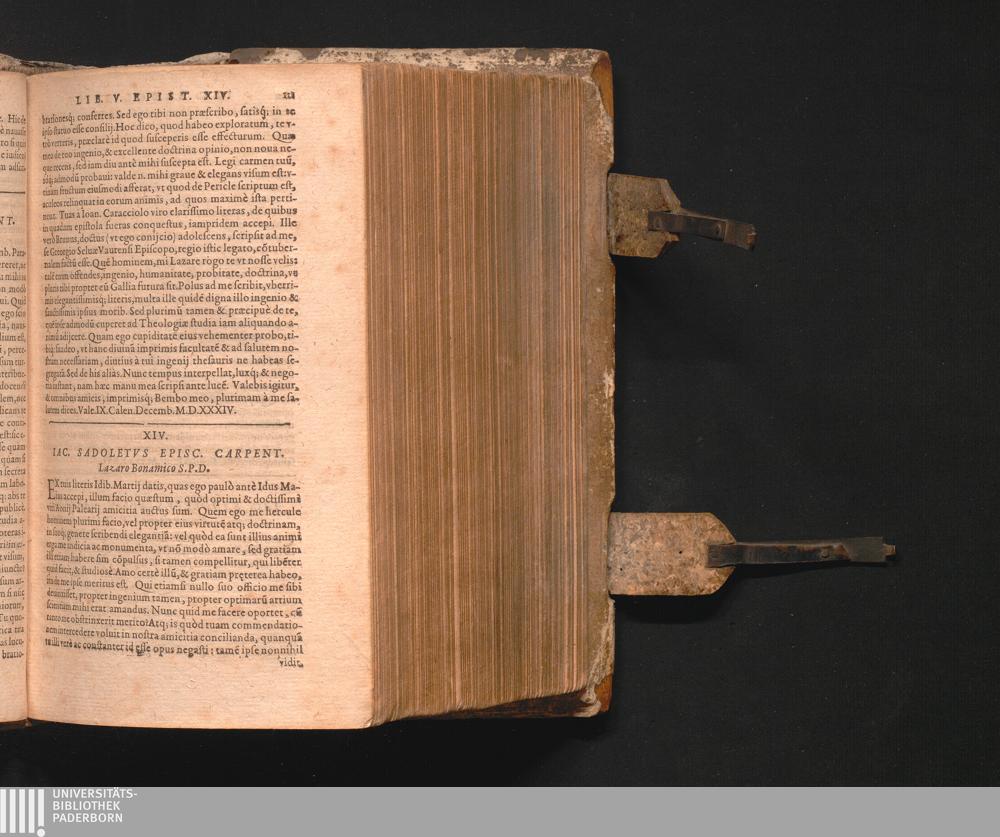 LIB. V. EPIST. XIV.
brationesq; conferres. Sed ego tibi non præscribo, satisq; in te
ipso statuo esse consilij. Hoc dico, quod habeo exploratum, te v-
trò verteris, præclarè id quod susceperis esse effecturum. Quæ
mea de tuo ingenio, & excellente doctrina opinio, non noua ne-
que recens, sed iam diu antè mihi suscepta est. Legi carmen tuũ,
idq; admodũ probaui: valde n. mihi graue & elegans visum est: v-
tinam fructum eiusmodi afferat, vt quod de Pericle scriptum est,
aculeos relinquat in eorum animis, ad quos maximè ista perti-
nent. Tuas à Ioan. Caracciolo viro clarissimo literas, de quibus
in quadam epistola fueras conquestus, iampridem accepi. Ille
verò doctus (vt ego conijcio) adolescens, scripsit ad me,
se Georgio Seluæ Vaurensi Episcopo, regio istic legato, cõtuber-
nalem factũ esse. Quẽ hominem, mi Lazare rogo te vt nosse velis:
talẽ enim offendes, ingenio, humanitate, probitate, doctrina, vt
pluris tibi propter eũ Gallia futura sit. Polus ad me scribit, vberri-
mis elegantissimisq; literis, multa ille quidẽ digna illo ingenio &
sanctissimis ipsius morib. Sed plurimũ tamen & præcipuè de te,
quẽ ipse admodũ cuperet ad Theologiæ studia iam aliquando a-
nimũ adijcere. Quam ego cupiditatẽ eius vehementer probo, ti-
biq; suadeo, vt hanc diuinã imprimis facultatẽ & ad salutem no-
stram necessariam, diutius à tui ingenij thesauris ne habeas se-
gregatã. Sed de his aliàs. Nunc tempus interpellat, luxq; & nego-
tia instant, nam hæc manu mea scripsi ante lucẽ. Valebis igitur,
& omnibus amicis, imprimisq; Bembo meo, plurimam à me sa-
lutem dices. Vale. IX. Calen. Decemb. M.D.XXXIV.
XIV.
IAC. SADOLETVS EPISC. CARPENT.
Lazaro Bonamico S.P.D.
EX tuis literis Idib. Martij datis, quas ego paulò antè Idus Ma-
ias accepi, illum facio quæstum, quòd optimi & doctissimi
viri Aonij Palearij amicitia auctus sum. Quem ego me hercule
hominem plurimi facio, vel propter eius virtutẽ atq; doctrinam,
in suoq; genere scribendi elegantiã: vel quòd ea sunt illius animi
erga me indicia ac monumenta, vt nõ modò amare, sed gratiam
illi etiam habere sim cõpulsus, si tamen compellitur, qui libẽter
quid facit, & studiosè. Amo certè illũ, & gratiam pręterea habeo,
de me ipse meritus est. Qui etiamsi nullo suo officio me sibi
deuinxisset, propter ingenium tamen, propter optimarũ artium
scientiam mihi erat amandus. Nunc quid me facere oportet, cũ
tanto me obstrinxerit merito? Atq; is quòd tuam commendatio-
nem intercedere voluit in nostra amicitia concilianda, quanquã
tu illi verè ac constanter id esse opus negasti: tamẽ ipse nonnihil
vidit,
UNIVERSITÄTS-
BIBLIOTHEK
PADERBORN